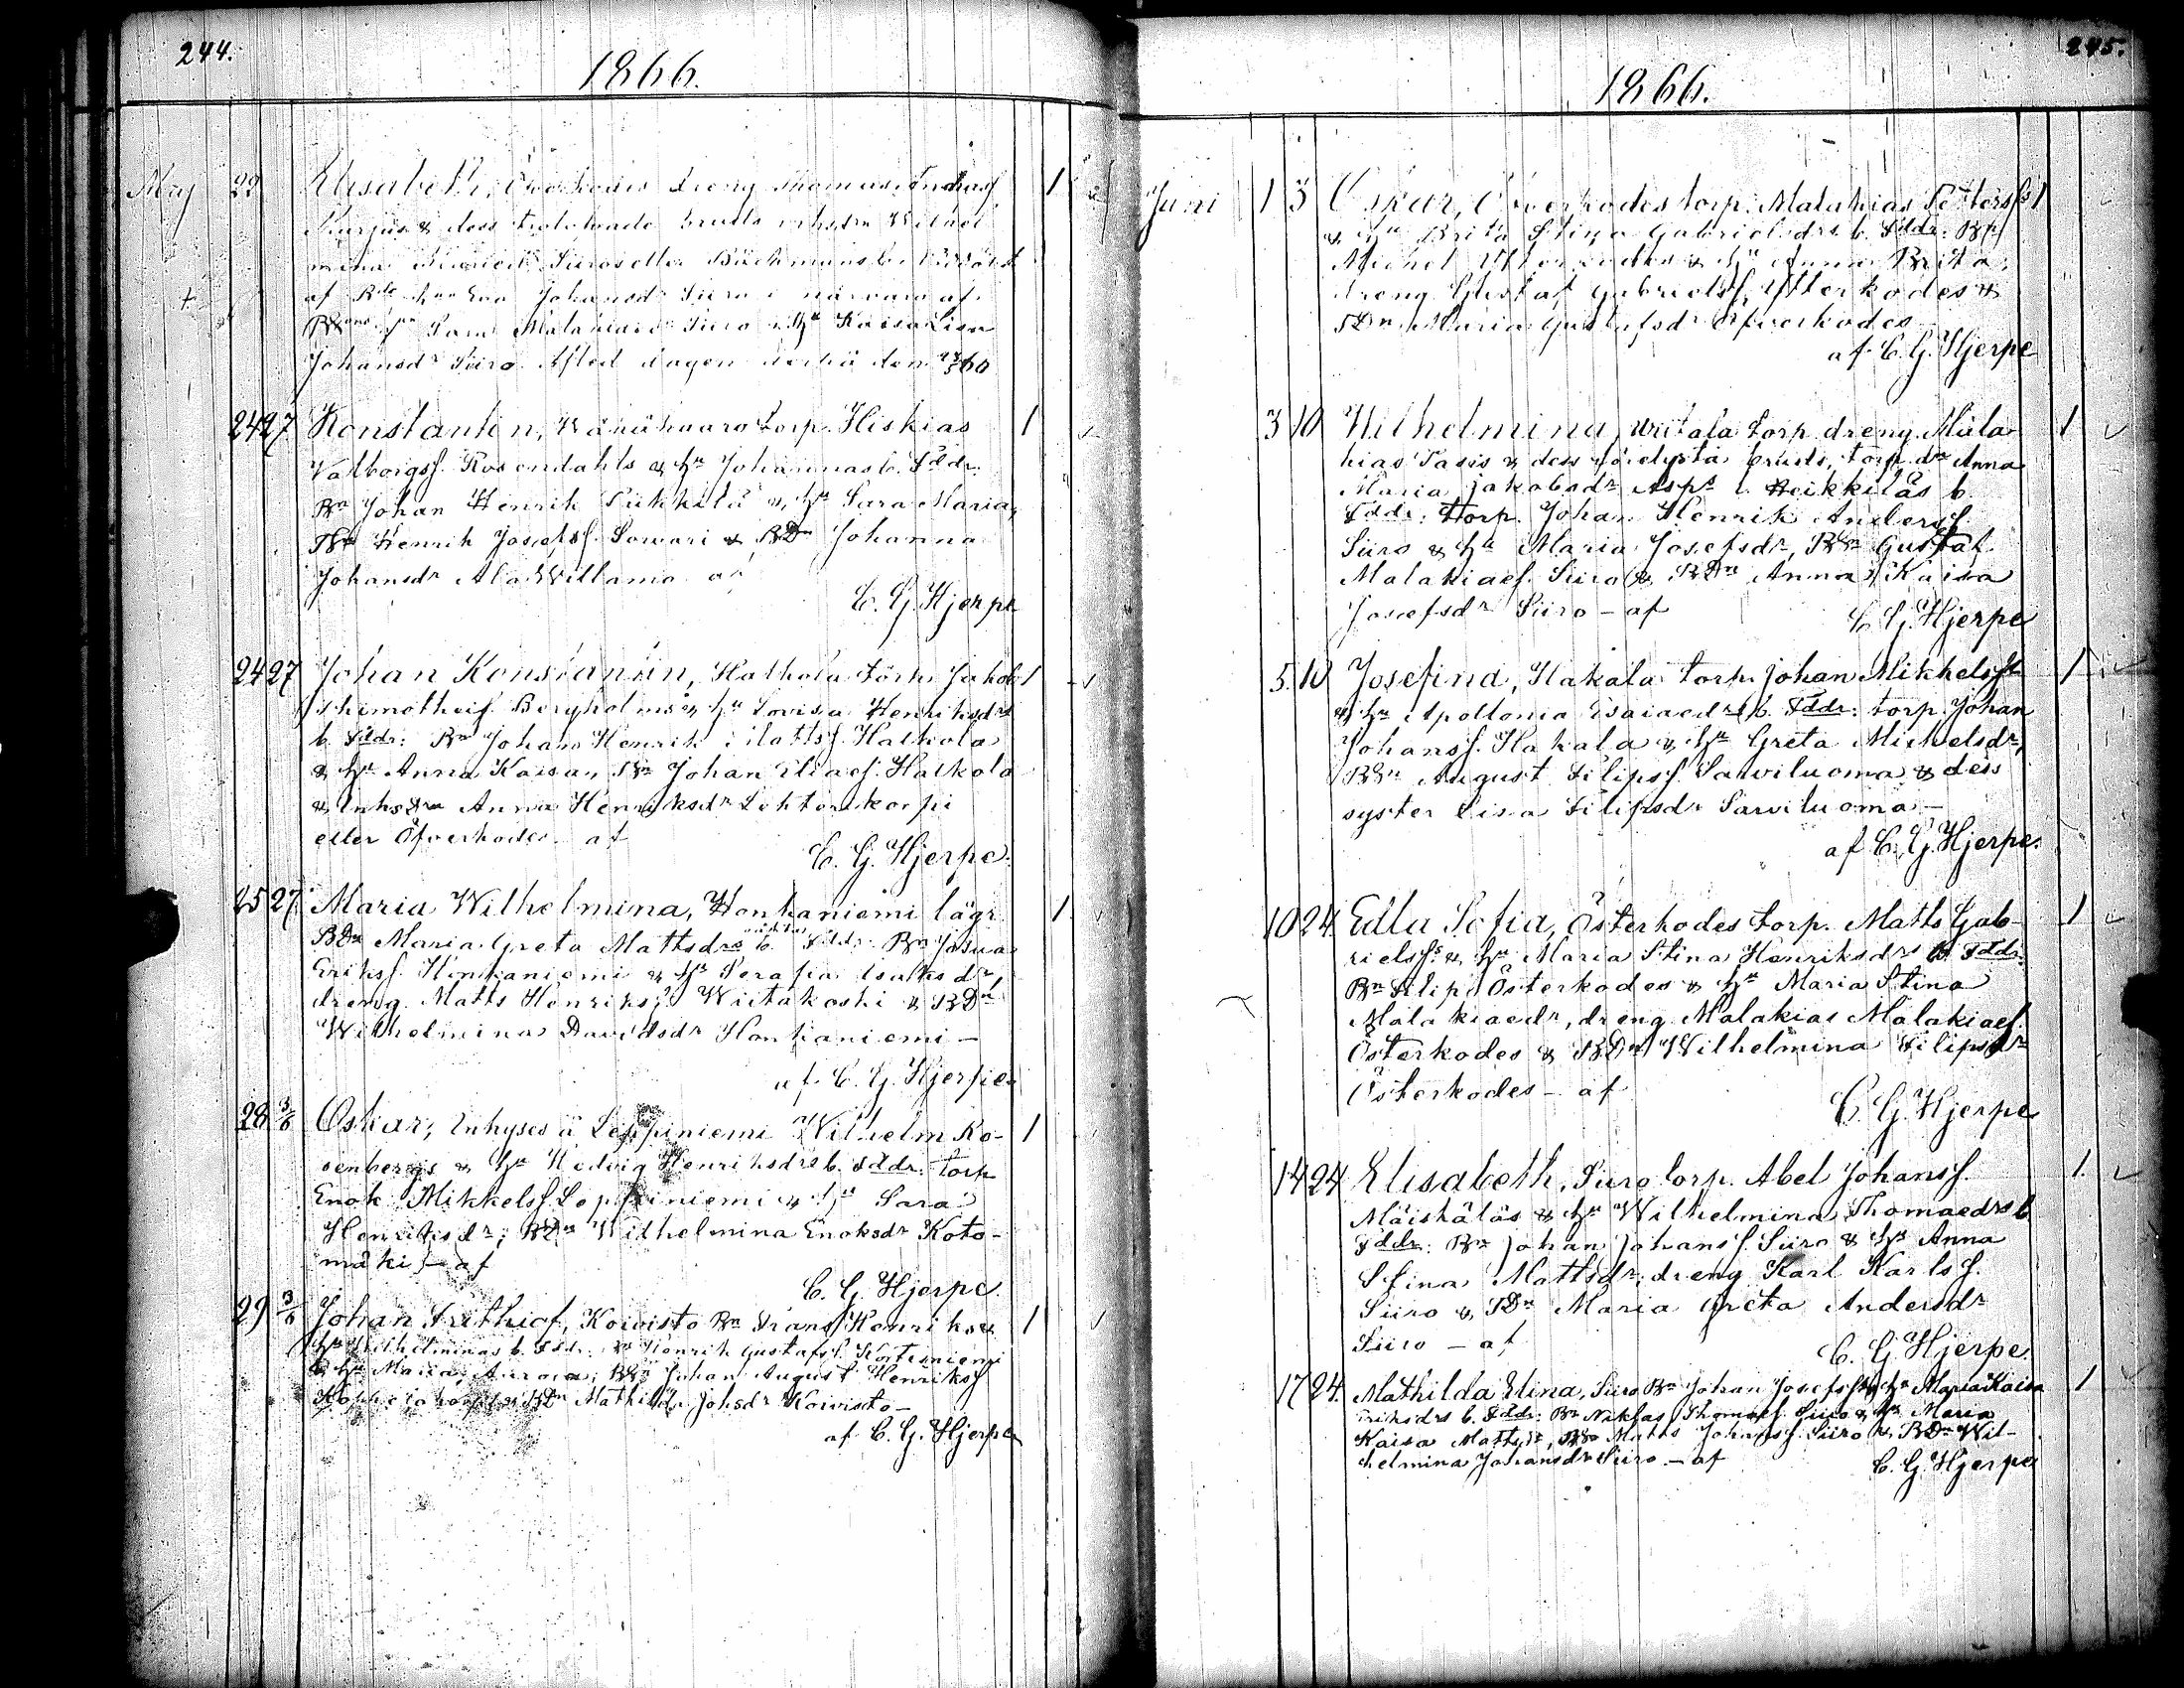 244.
1866.
May 22 Elisabeth, Öfverkodes dreng Thomas 1
Kurjus & dess trolofvade bruds inhsdrn Wilhel
mina
af Johansdr Siiro i närvaro af
Sara Malakiaedr Siiro & hu Kaisa Lisa
Johansdr Siiro. Afled dagen
24 27 Konstantin, torp. Hiskias 1
Valborgsf. Rosendahls & hu Johannas b. Fddr:
Bn Johan Henrik Pitkkilä & hu Sara Maria,
Henrik Josefsf. Sowari & BDn Johanna
Johansdr Ala Willamo af
C. G. Hjerpe
24 27 Johan Konstantin, Halkola torp. Jakob 1
Thimotheif. Bergholms & hu Lovisa Henriksdrs
b. Fddr: Bn Johan Henrik Mattsf. Halkola
& hu Anna Kaisa, Bn Johan Eliaef. Halkola
& Inhsdrn Anna Henriksdr Lohtarikorpi
eller Öfverkodes. af
C. G. Hjerpe.
25 27 Maria Wilhelmina, Honkaniemi lägr. 1
BDn Maria Greta Mattsdrs oäkta b. Fddr: Bn Josua
Eriksf. Honkaniemi & hu Serafia Isaksdr,
dreng Matts Henriksf. Wiitakoski & BDn
Wilhelmina Davidsdr Honkaniemi —
af C. G. Hjerpe
28 3/6 Oskar, Inhyses å Leppiniemi Wilhelm Ro- 1
senbergs & hu Hedvig Henriksdrs b. Fddr: torp
Enok Mikkelsf. Leppiniemi & hu Sara
Henriksdr; BDn Wilhelmina Enoksdr Koto-
mäki — af
C. G. Hjerpe.
29 3/6 Johan Frithiof, Koivisto Bn Frans Henriks & 1
hu Wilhelminas b. Fddr: Bn Henrik Gustafsf. Kortesniemi
& hu Maria Aurora, BSn Johan August Henriksf
& BDn Mathilda Johsdr Koivisto —
af C. G. Hjerpe
245.
1866.
Juni 1 3 Oskar, Öfverkodes torp. Malakias Pettersfs 1
& hu Brita Stina Gabrielsdrs b. Fddr: Bn
Michel Ytterkodes & hu Anna Brita,
dreng Gustaf Gabrielsf. Ytterkodes &
BDn Maria Gustafsdr Öfverkodes
af C. G. Hjerpe
3 10 Wilhelmina, torp. dreng Mala- 1
kias Pasis & dess bruds, torp. drn Anna
Maria Jakobsdr Asps l. Heikkiläs b.
Fddr: torp. Johan Henrik Andersf.
Siiro & hu Maria Josefsdr, BSn Gustaf
Malakiaef. Siiro & BDn Anna Kaisa
Josefsdr Siiro — af
C. G. Hjerpe
5 10 Josefina, Hakala torp. Johan Mikkelsfs 1
& hu Apollonia Esaiaedrs b. Fddr: torp. Johan
Johansf. Hakala & hu Greta Michelsdr,
BSn August Filipsf. Sarviluoma & dess
syster Lisa Filipsdr Sarviluoma —
af C. G. Hjerpe.
10 24. Edla Sofia, Österkodes torp. Matts Gab- 1
rielsfs & hu Maria Stina Henriksdrs b. Fddr:
Bn Filip Österkodes & hu Maria Stina
Malakiaedr, dreng Malakias Malakiaef.
Österkodes & BDn Wilhelmina Filipsdr
Österkodes — af
C. G. Hjerpe
14 24 Elisabeth, Siiro torp. Abel Johansf. 1
Mäiskäläs & hu Wilhelmina Thomaedrs b
Fddr: Bn Johan Johansf. Siiro & hu Anna
Stina Mattsdr; dreng Karl Karlsf.
Siiro & BDn Maria Greta Andersdr
Siiro — af
C. G. Hjerpe.
17 24. Mathilda Elina, Siiro Bn Johan Josefsfs & hu Maria Kaisa 1
Eriksdrs b. Fddr: Bn Niklas Thomaef. Siiro & hu Maria
Kaisa Mattsdr, BSn Matts Johansf. Siiro & BDn Wil-
helmina Johansdr Siiro — af
C. G. Hjerpe